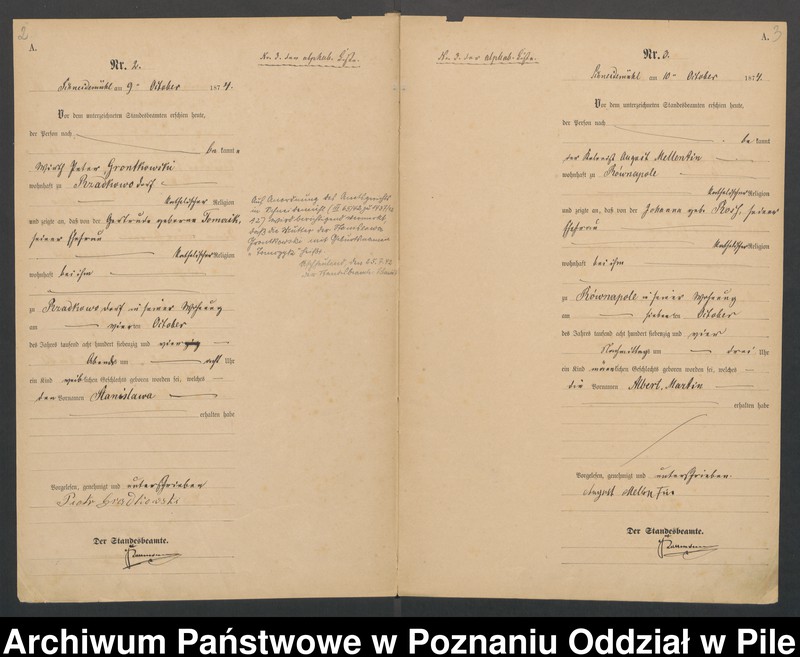 2
A.
Nr. 2.
am 9ten October 1874.
Vor dem unterzeichneten Standesbeamten erschien heute,
der Person nach
be kannt
Wirth Peter Grontkowski
wohnhaft zu Rzadkowo Dorf
katholischer Religion
und zeigte an, daß von der Gertrude geborene Tomaik,
seiner Ehefrau
katholischer Religion
wohnhaft bei ihm
zu Rzadkowo Dorf in seiner Wohnung
am vierten October
des Jahres tausend acht hundert siebenzig und vier
Abends um acht Uhr
ein Kind weiblichen Geschlechts geboren worden sei, welches
den Vornamen Stanislawa
erhalten habe
Vorgelesen, genehmigt und unterschrieben
Piotr
Der Standesbeamte.
No 3. der alphab. Liste.
Auf Anordnung des Amtsgerichts
in Schneidemühl
wird berichtigend vermerkt,
daß die Mutter der Stanislawa
Grontkowski mit Geburtsnamen
heißt.
Der Standesbeamte.
No 3. der alphab. Liste.
A. 3
Nr. 3.
am 10ten October 1874.
Vor dem unterzeichneten Standesbeamten erschien heute,
der Person nach
be kannt
der Kolonist August Mellentin
wohnhaft zu Równopole
katholischer Religion
und zeigte an, daß von der Johanna geb. seiner
Ehefrau
katholischer Religion
wohnhaft bei ihm
zu Równopole in seiner Wohnung
am siebenten October
des Jahres tausend acht hundert siebenzig und vier
Nachmittags um drei Uhr
ein Kind männlichen Geschlechts geboren worden sei, welches
die Vornamen Albert, Martin
erhalten habe
Vorgelesen, genehmigt und unterschrieben.
August
Der Standesbeamte.
Archiwum Państwowe w Poznaniu Oddział w Pile